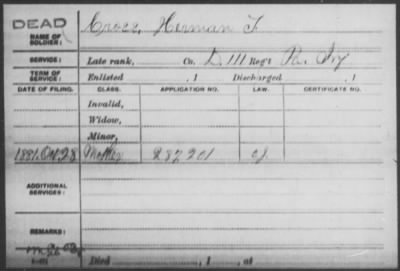 DEAD
NAME OF SOLDIER: Herman F.
SERVICE: Late rank, Co. D, 111 Reg't Pa. Inf
TERM OF SERVICE: Enlisted , 1 Discharged , 1
DATE OF FILING. CLASS. APPLICATION NO. LAW. CERTIFICATE NO.
Invalid,
Widow,
Minor,
Mother 287201
ADDITIONAL SERVICES:
REMARKS:
Died , 1 , at